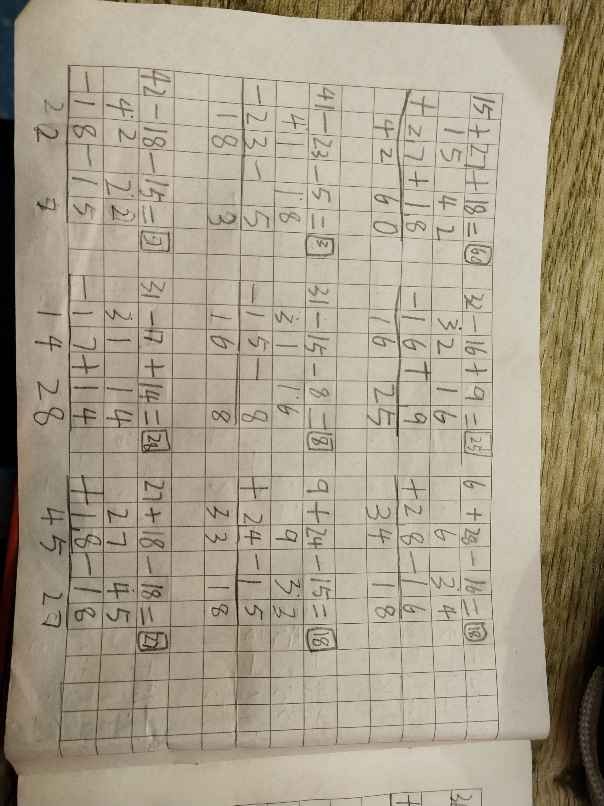 15+27+18=60 32-16+9=25 6+28-16=18
15 42 32 16 6 34
+27+18 -16+9 +28-16
42 60 16 25 34 18
41-23-5=3 31-15-8=8 9+24-15=18
41 18 31 16 9 33
-23-5 -15-8 +24-15
18 3 16 8 33 18
42-18-15=7 31-17+14=28 27+18-18=27
42 22 31 14 27 45
-18-15 -17+14 +18-18
22 7 14 28 45 27